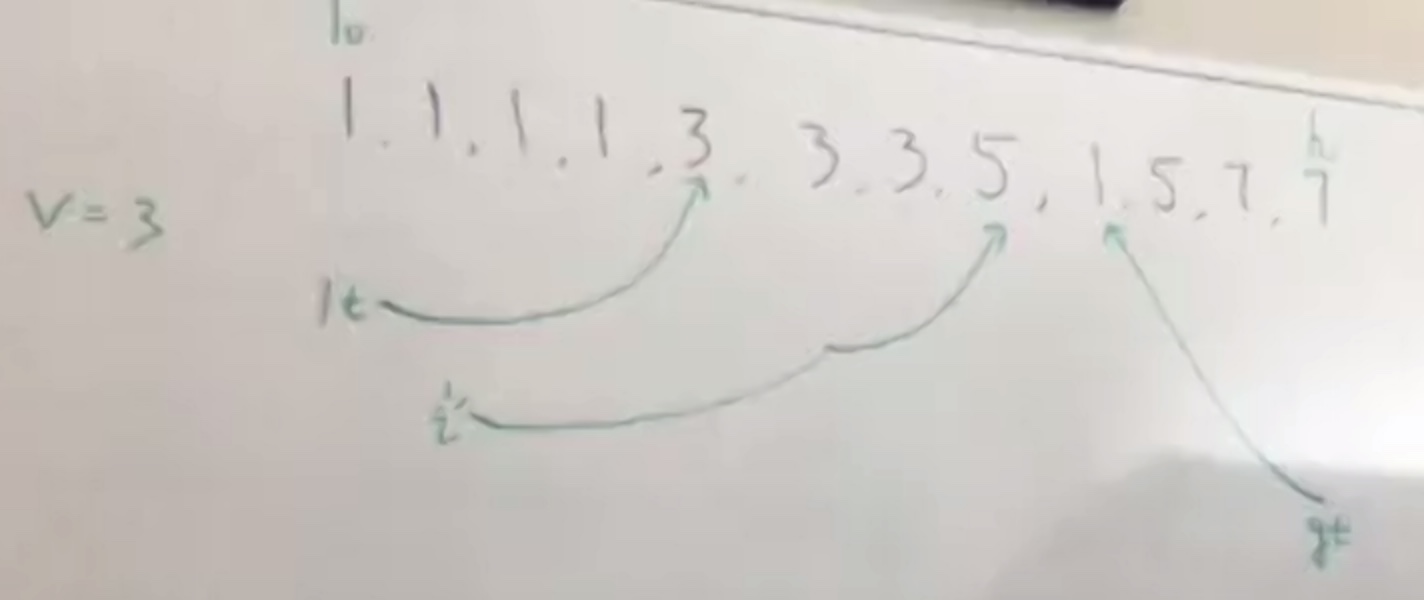 lo
h
1, 1, 1, 1, 3, 3, 3, 5, 1, 5, 7, 7
V = 3
lt
i
gt